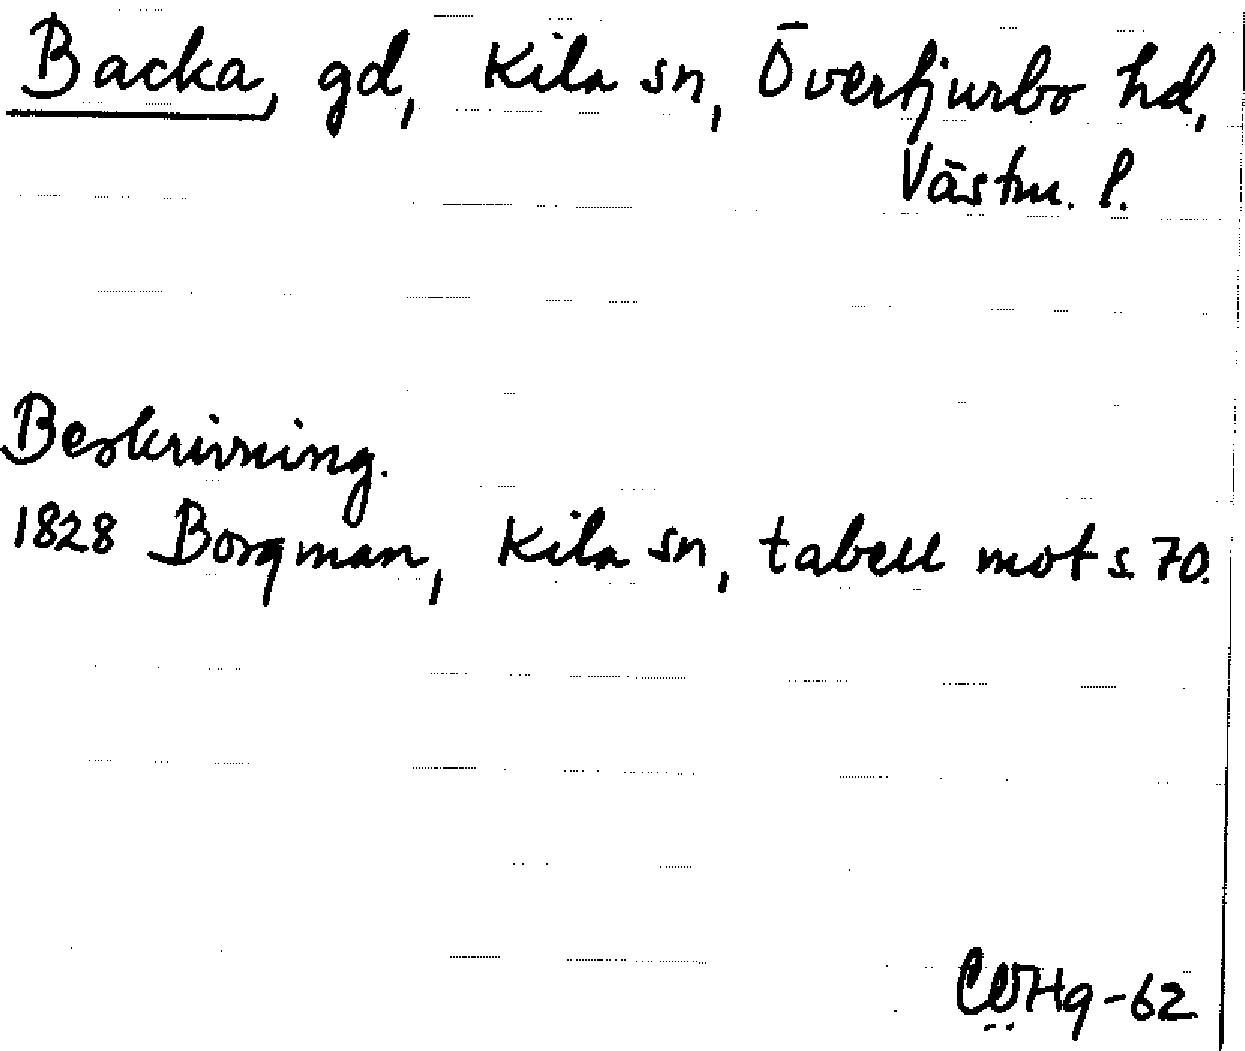 Backa, gd, Kila sn, Övertjurbo hd,
Västm. l.
Beskrivning.
1828 Borgman, Kila sn, tabell mot s 70.